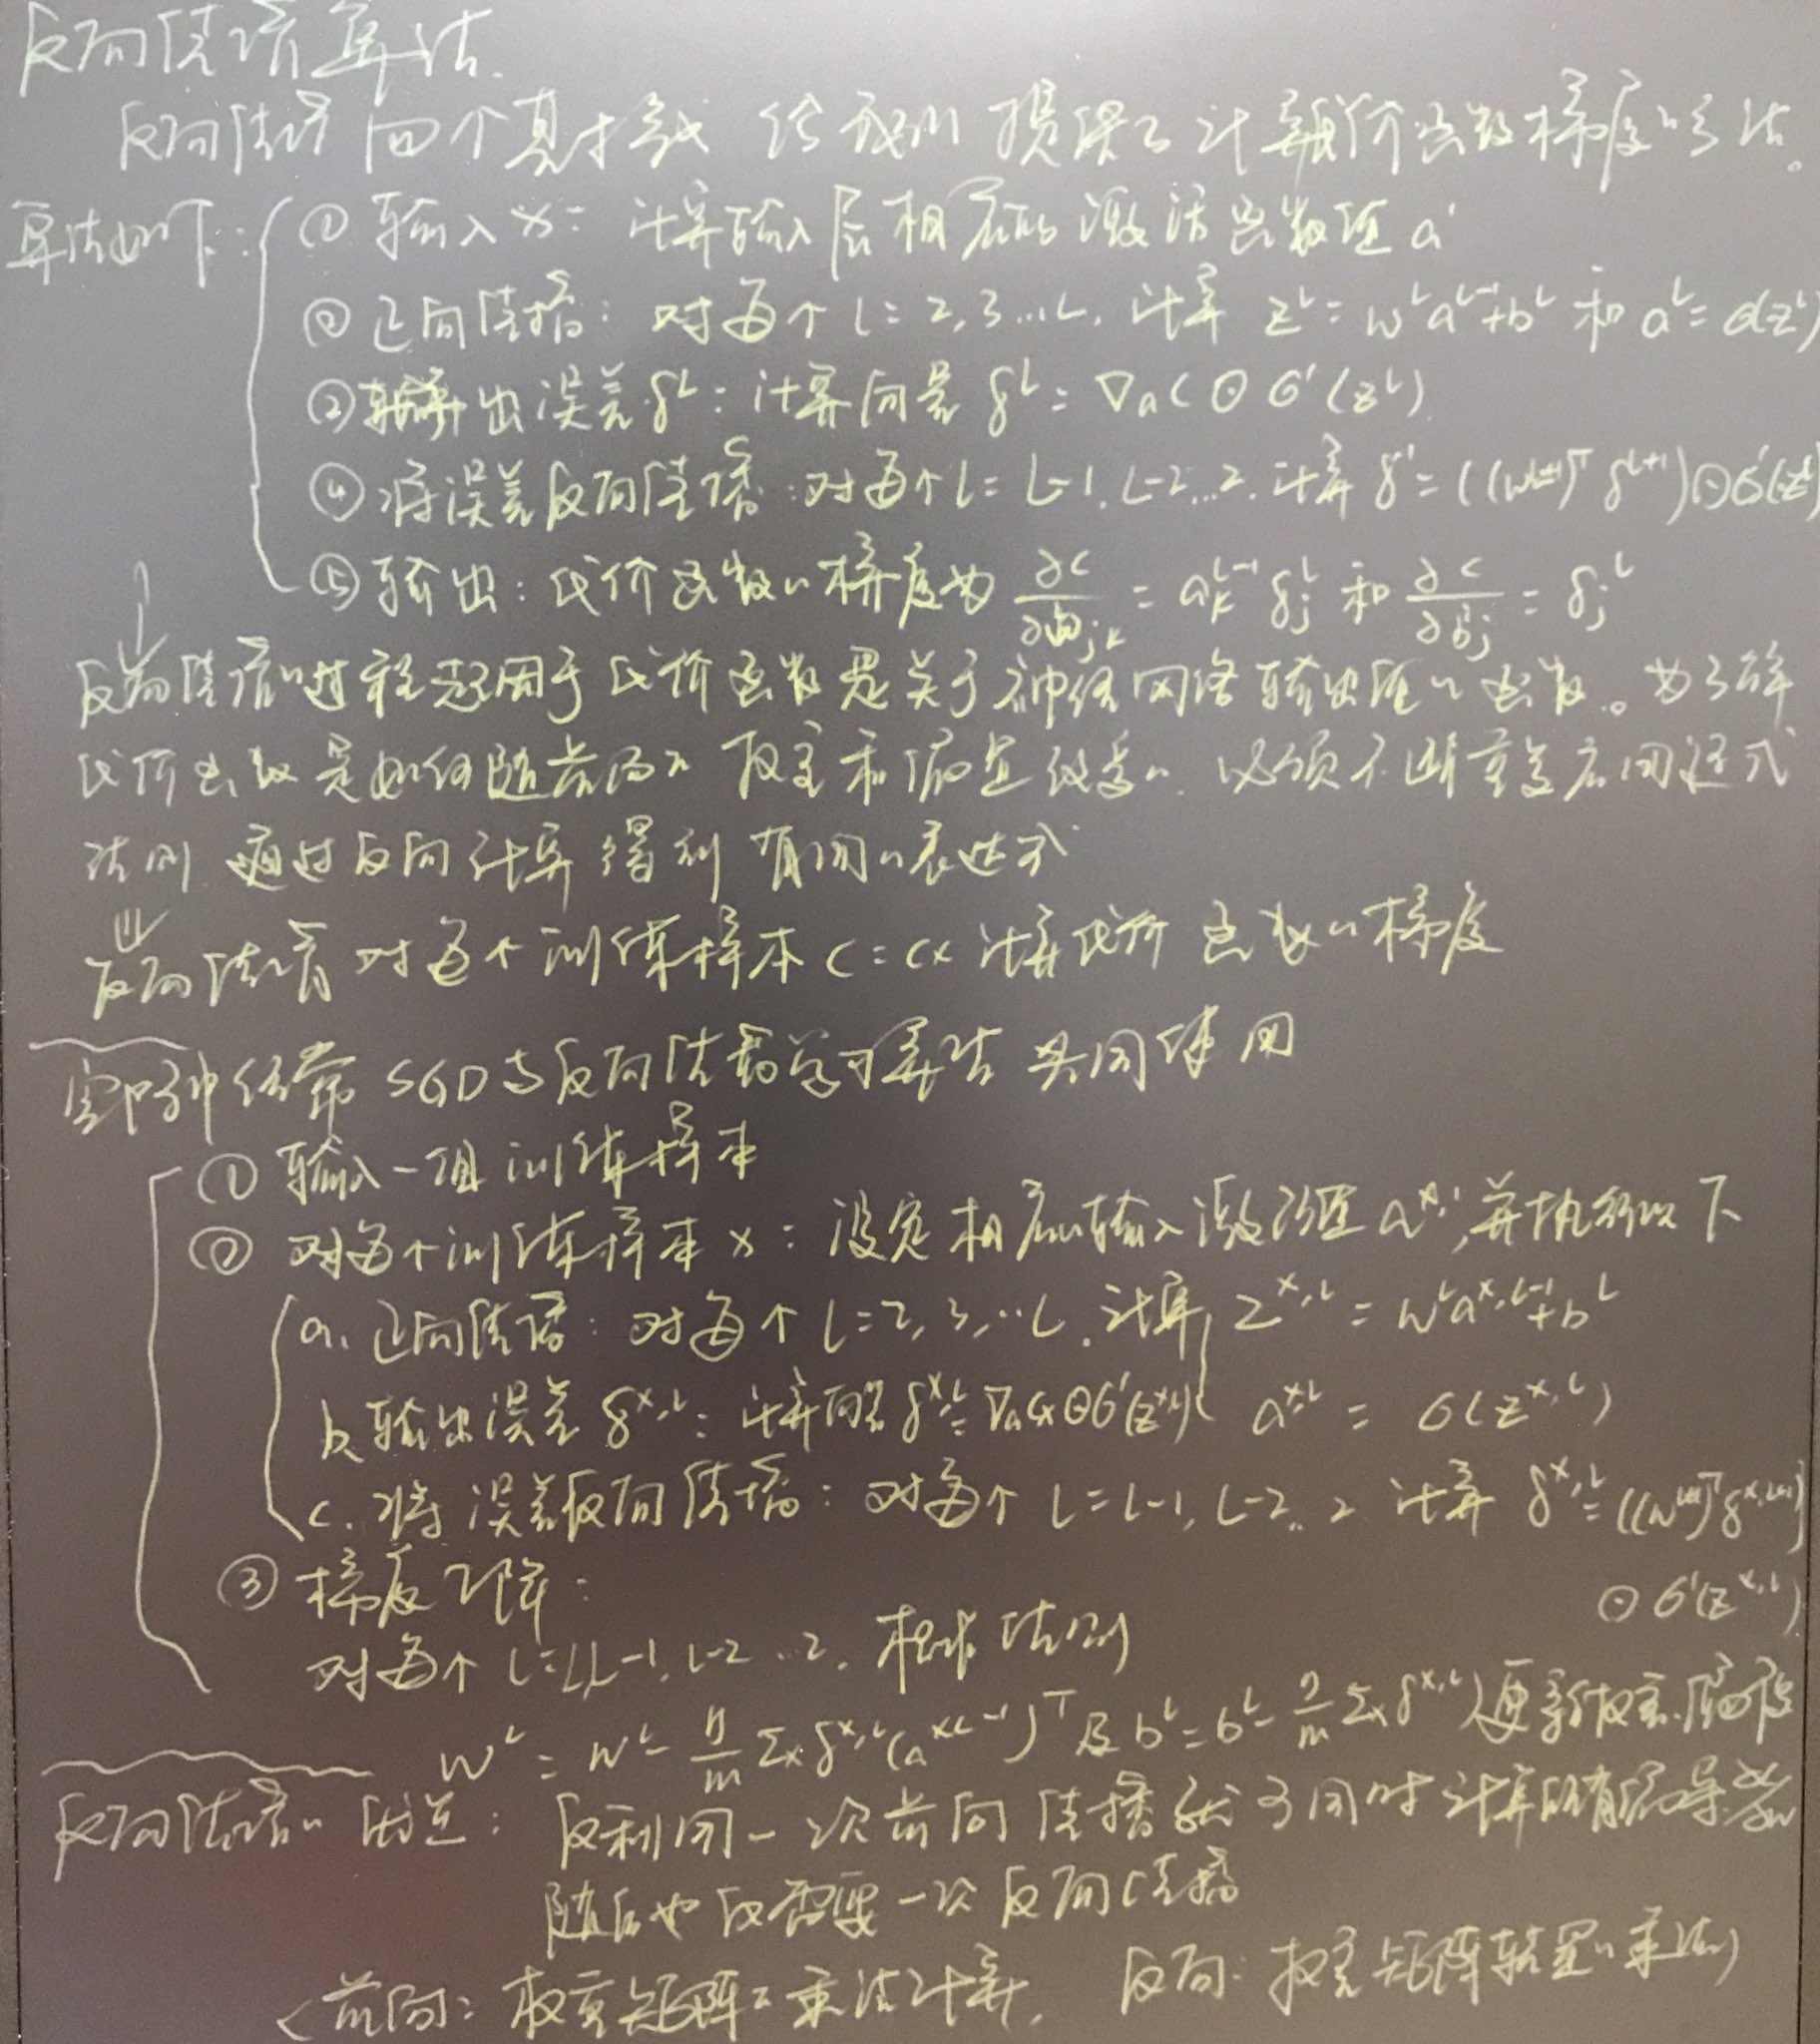 反向传播算法.
反向传播四个基本方程 给我们提供了计算代价函数梯度的方法。
算法如下:
① 输入x: 计算输入层相应的激活函数值 a¹
② 正向传播: 对每个 l = 2,3...L, 计算 z^l = w^l a^{l-1}+b^l 和 a^l = σ(z^l)
③ 输出误差 δ^L: 计算向量 δ^L = ∇aC ⊙ σ'(z^L).
④ 将误差反向传播: 对每个 l = L-1, L-2...2. 计算 δ^l = ((w^{l+1})^T δ^{l+1})⊙σ'(z^l)
⑤ 输出: 代价函数的梯度为 ∂C/∂w_{jk} = a_k^{l-1} δ_j^l 和 ∂C/∂b_j^l = δ_j^l
反向传播的过程 用于代价函数是关于神经网络输出值的函数。为了解
代价函数是如何随前面的权重和偏置改变的. 必须不断重复应用链式
法则. 通过反向计算得到有用的表达式
反向传播 对每个训练样本 C = Cx 计算代价函数的梯度
实际中经常 SGD与反向传播学习算法 共同使用
① 输入一组训练样本
② 对每个训练样本 x: 设定相应的输入激活值 a^{x,1}, 并执行以下
a. 正向传播: 对每个 l=2,3,...L. 计算 z^{x,l} = w^l a^{x,l-1}+b^l
a^{x,l} = σ(z^{x,l})
b. 输出误差 δ^{x,L}: 计算向量 δ^{x,L} = ∇aCx⊙σ'(z^{x,L})
c. 将误差反向传播: 对每个 l = L-1, L-2..2 计算 δ^{x,l} = ((w^{l+1})^T δ^{x,l+1})
⊙ σ'(z^{x,l})
③ 梯度下降:
对每个 l = L, L-1, L-2 ...2. 根据法则
w^l = w^l - η/m Σx δ^{x,l}(a^{x,l-1})^T 及 b^l = b^l - η/m Σx δ^{x,l} 更新权重.偏置
反向传播的优点: 仅利用一次前向传播就可同时计算所有偏导数
随后也仅需要一次反向传播
(前向: 权重矩阵的乘法计算. 反向: 权重矩阵转置的乘法)